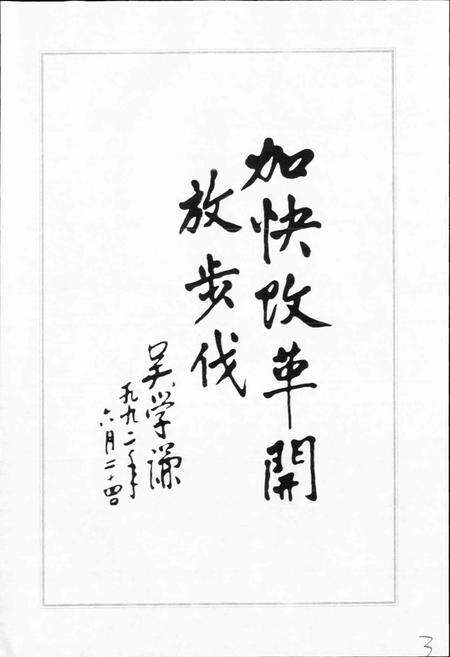 加快改革開
放步伐
吴学谦
一九九二年
六月二十四日
3